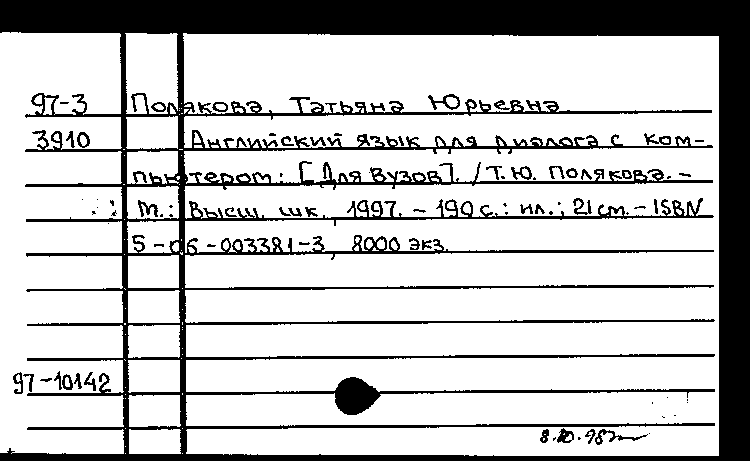 97-3 Полякова, Татьяна Юрьевна
3910 Английский язык для диалога с ком-
пьютером: [Для вузов]. / Т.Ю. Полякова. -
М.: Высш. шк., 1997. - 190 с.: ил.; 21 см. - ISBN
5-06-003381-3, 8000 экз.
97-10142